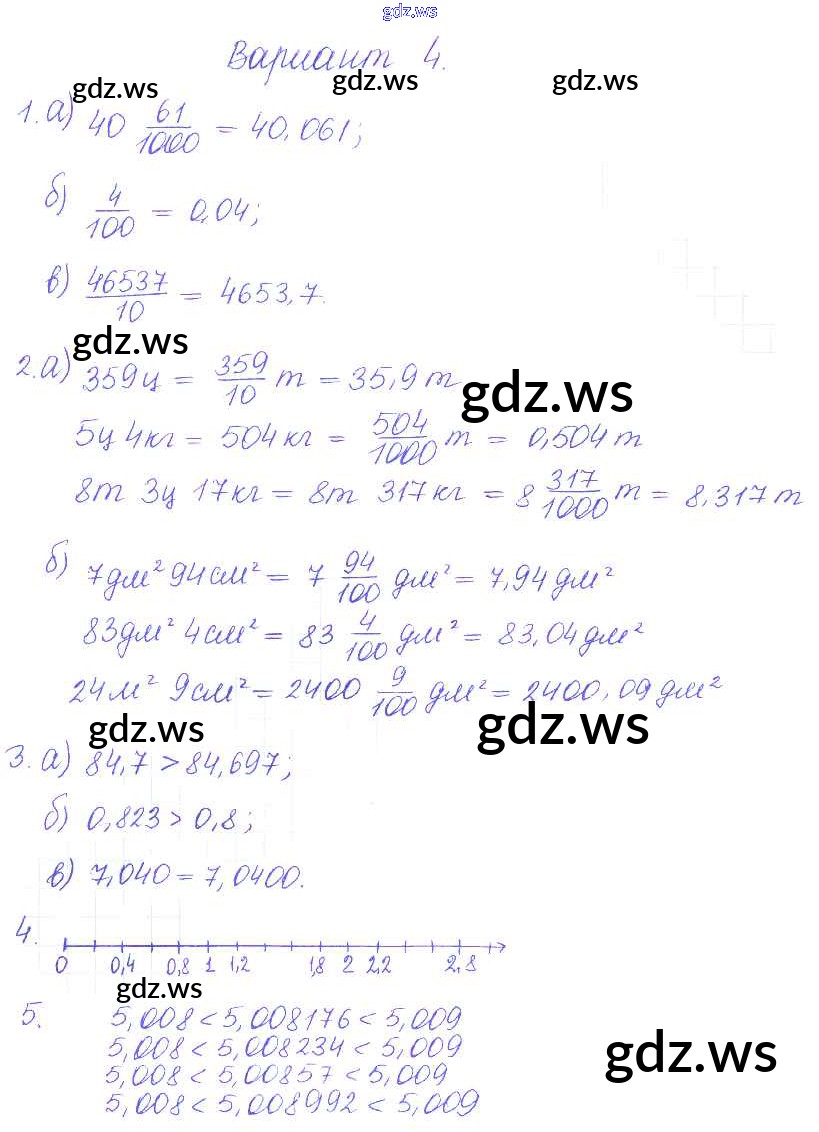 gdz.ws
Вариант 4.
gdz.ws gdz.ws gdz.ws
1. а) 40 61/1000 = 40,061;
б) 4/100 = 0,04;
в) 46537/10 = 4653,7.
gdz.ws
2. а) 359 ц = 359/10 т = 35,9 т
gdz.ws
5ц 4кг = 504 кг = 504/1000 т = 0,504 т
8т 3ц 17кг = 8т 317 кг = 8 317/1000 т = 8,317 т
б) 7дм² 94см² = 7 94/100 дм² = 7,94 дм²
83дм² 4см² = 83 4/100 дм² = 83,04 дм²
24м² 9см² = 2400 9/100 дм² = 2400,09 дм²
gdz.ws gdz.ws
3. а) 84,7 > 84,697;
б) 0,823 > 0,8;
в) 7,040 = 7,0400.
4.
0 0,4 0,8 1 1,2 1,8 2 2,2 2,8
gdz.ws
5. 5,008 < 5,008176 < 5,009
5,008 < 5,008234 < 5,009
gdz.ws
5,008 < 5,00857 < 5,009
5,008 < 5,008992 < 5,009